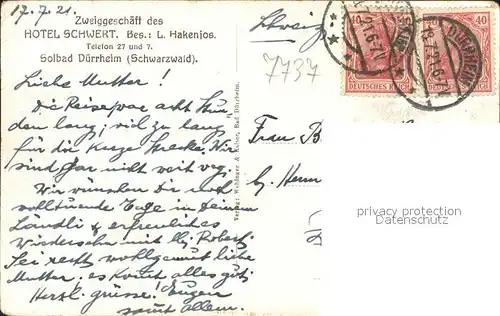 17.7.21.
Zweiggeschäft des
HOTEL SCHWERT. Bes.: L. Hakenjos.
Telefon 27 und 7.
Solbad Dürrheim (Schwarzwald).
Schweiz
7737
40 40
DEUTSCHES REICH DEUTSCHES REICH
DÜRRHEIM
Liebe Mutter!
Die Reise war acht Stun
den lang, viel zu lang
für die kurze Strecke. Wir
sind gar nicht weit weg.
Wir wünschen Dir noch
Tage in Deinem
& erfreuliches
Wiedersehn mit Robert.
Sei recht wohlgemut liebe
Mutter. es kommt alles gut.
Herzl. grüsse! Eugen
samt allem.
Bad Dürrheim.
Frau B
b. Herrn
privacy protection
Datenschutz